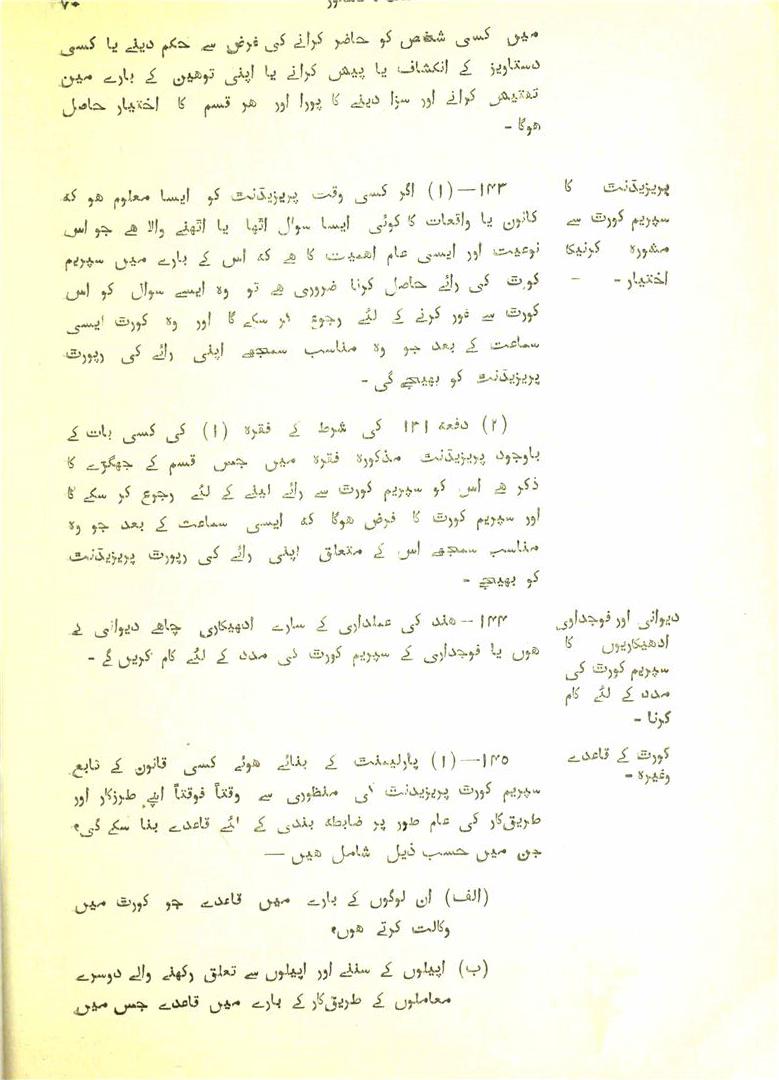 ۷۰
میں کسی شخص کو حاضر کرانے کی غرض سے حکم دینے یا کسی
دستاویز کے انکشاف یا پیش کرانے یا اپنی توھین کے بارے مین
تفتیش کرانے اور سزا دینے کا پورا اور ھر قسم کا اختیار حاصل
ھوگا -
پریزیڈنٹ کا
سپریم کورٹ سے
مشورہ کرنیکا
اختیار - -
۱۴۳—(۱) اگر کسی وقت پریزیڈنٹ کو ایسا معلوم ھو کہ
کانون یا واقعات کا کوئی ایسا سوال اٹھا یا اٹھنے والا ھے جو اس
نوعیت اور ایسی عام اھمیت کا ھے کہ اس کے بارے میں سپریم
کورٹ کی رائے حاصل کرنا ضروری ھے تو وہ ایسے سوال کو اس
کورٹ سے غور کرنے کے لئے رجوع کر سکے گا اور وہ کورٹ ایسی
سماعت کے بعد جو وہ مناسب سمجھے اپنی رائے کی رپورٹ
پریزیڈنٹ کو بھیجے گی -
(۲) دفعہ ۱۳۱ کی شرط کے فقرہ (۱) کی کسی بات کے
باوجود پریزیڈنٹ مذکورہ فقرہ میں جس قسم کے جھگڑے کا
ذکر ھے اس کو سپریم کورٹ سے رائے لینے کے لئے رجوع کر سکے گا
اور سپریم کورٹ کا فرض ھوگا کہ ایسی سماعت کے بعد جو وہ
مناسب سمجھے اس کے متعلق اپنی رائے کی رپورٹ پریزیڈنٹ
کو بھیجے -
دیوانی اور فوجداری
ادھیکاریوں کا
سپریم کورٹ کی
مدد کے لئے کام
کرنا -
۱۴۴—ھند کی عملداری کے سارے ادھیکاری چاھے دیوانی کے
ھوں یا فوجداری کے سپریم کورٹ کی مدد کے لئے کام کریں گے -
کورٹ کے قاعدے
وغیرہ -
۱۴۵—(۱) پارلیمنٹ کے بنائے ھوئے کسی قانون کے تابع
سپریم کورٹ پریزیڈنٹ کی منظوری سے وقتاً فوقتاً اپنے طرزکار اور
طریق‌کار کی عام طور پر ضابطہ بندی کے لئے قاعدے بنا سکے گی؟
جن میں حسب ذیل شامل ھیں —
(الف) ان لوگوں کے بارے میں قاعدے جو کورٹ میں
وکالت کرتے ھوں؟
(ب) اپیلوں کے سننے اور اپیلوں سے تعلق رکھنے والے دوسرے
معاملوں کے طریق‌کار کے بارے میں قاعدے جس میں